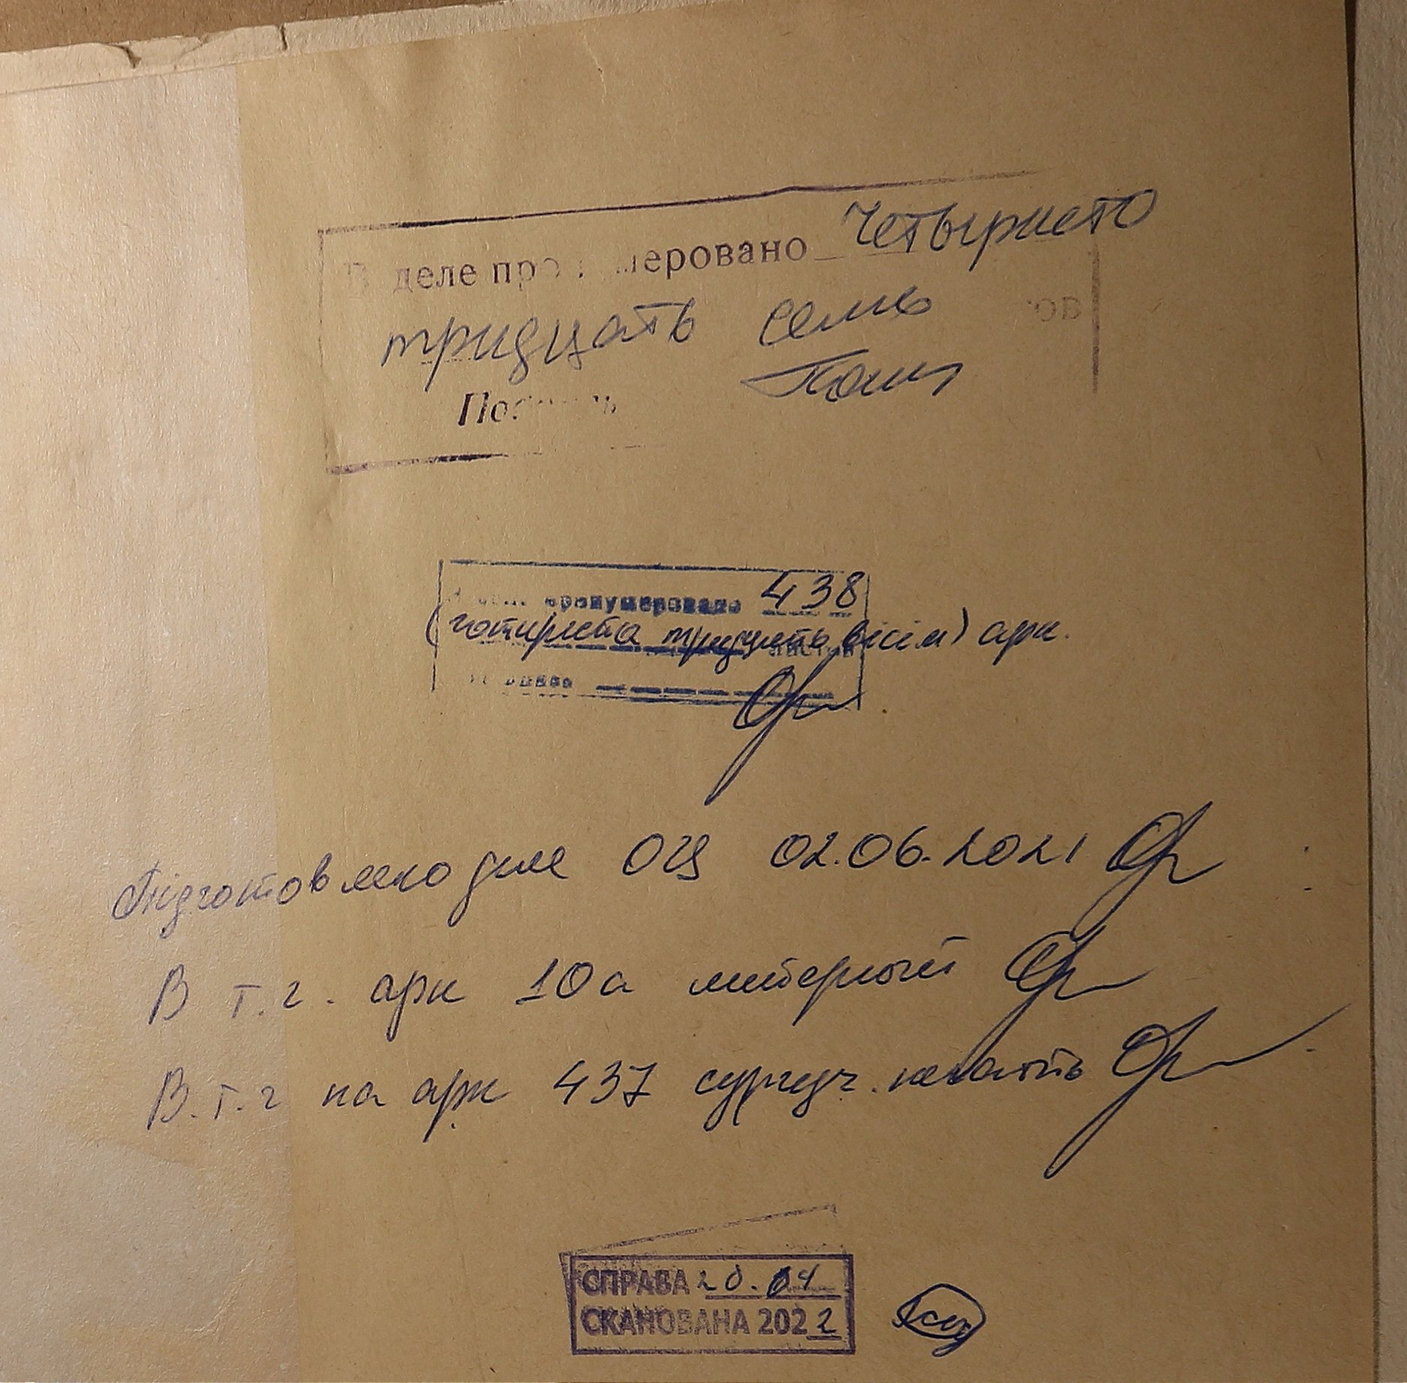 В деле пронумеровано Четыриста
тридцать семь
пронумеровано 438
(чотириста тридцять вісім) арк.
Підготовлено для ОЦ 02.06.2021
В т.г. арк 10а литерный
В.т.г на арк 437 сургуч. печать
СПРАВА 20.04
СКАНОВАНА 2022